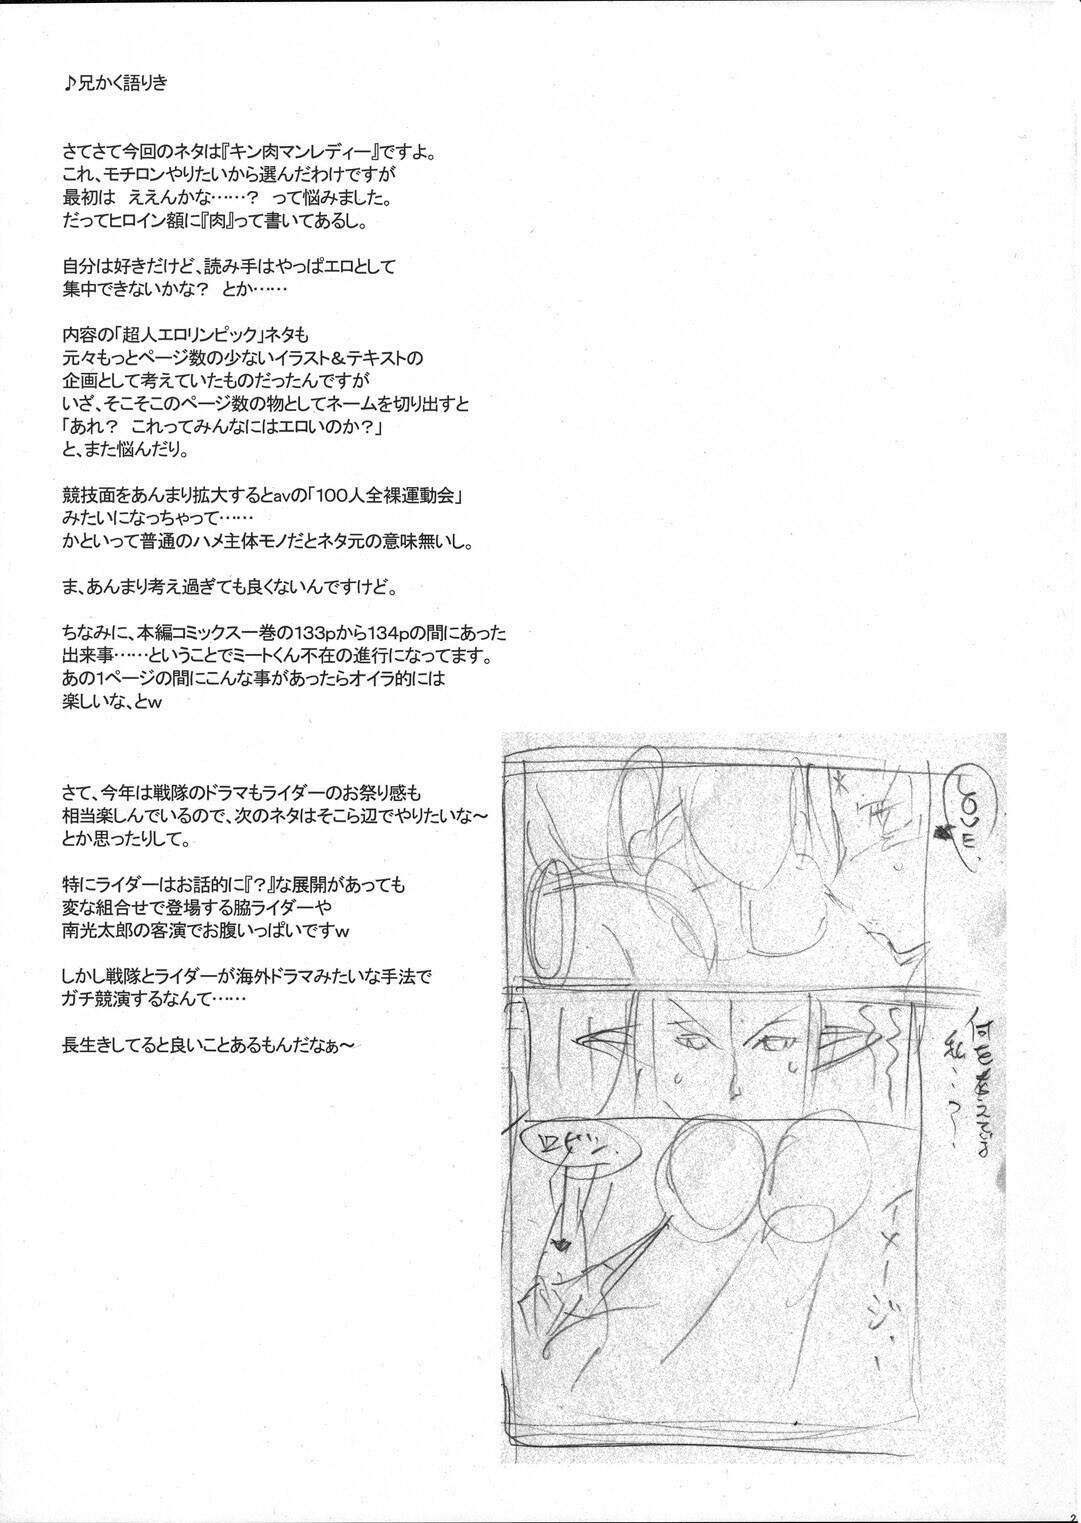 ♪兄かく語りき
さてさて今回のネタは『キン肉マンレディー』ですよ。
これ、モチロンやりたいから選んだわけですが
最初は　ええんかな……？　って悩みました。
だってヒロイン額に『肉』って書いてあるし。
自分は好きだけど、読み手はやっぱエロとして
集中できないかな？　とか……
内容の「超人エロリンピック」ネタも
元々もっとページ数の少ないイラスト＆テキストの
企画として考えていたものだったんですが
いざ、そこそこのページ数の物としてネームを切り出すと
「あれ？　これってみんなにはエロいのか？」
と、また悩んだり。
競技面をあんまり拡大するとavの「100人全裸運動会」
みたいになっちゃって……
かといって普通のハメ主体モノだとネタ元の意味無いし。
ま、あんまり考え過ぎても良くないんですけど。
ちなみに、本編コミックス一巻の133pから134pの間にあった
出来事……ということでミートくん不在の進行になってます。
あの1ページの間にこんな事があったらオイラ的には
楽しいな、とw
さて、今年は戦隊のドラマもライダーのお祭り感も
相当楽しんでいるので、次のネタはそこら辺でやりたいな～
とか思ったりして。
特にライダーはお話的に『？』な展開があっても
変な組合せで登場する脇ライダーや
南光太郎の客演でお腹いっぱいですw
しかし戦隊とライダーが海外ドラマみたいな手法で
ガチ競演するなんて……
長生きしてると良いことあるもんだなぁ～
ロビン.
イメージ.
2